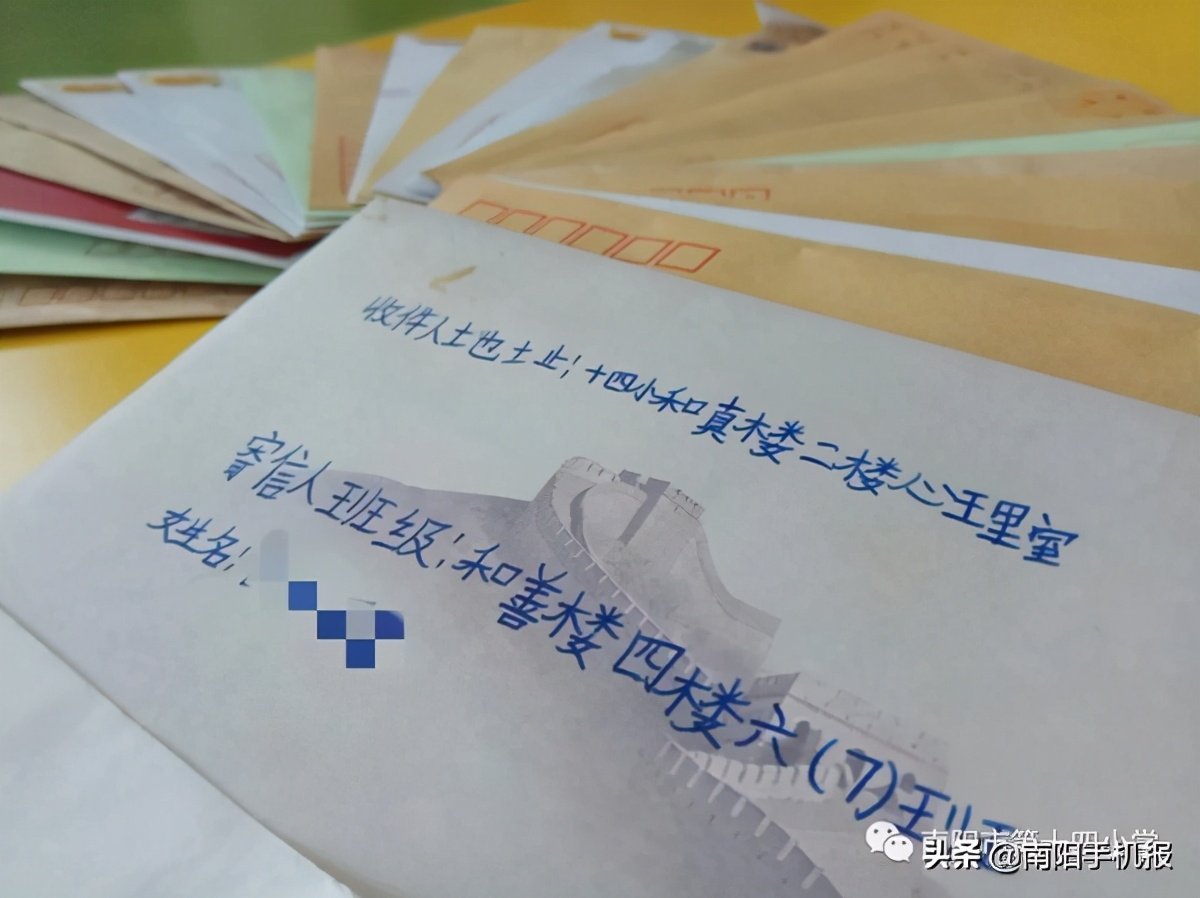 收件人地址:十四小和真楼二楼心理室
寄信人班级:和善楼四楼六(7)班
姓名:
南阳市第十四小学
头条 @南阳手机报